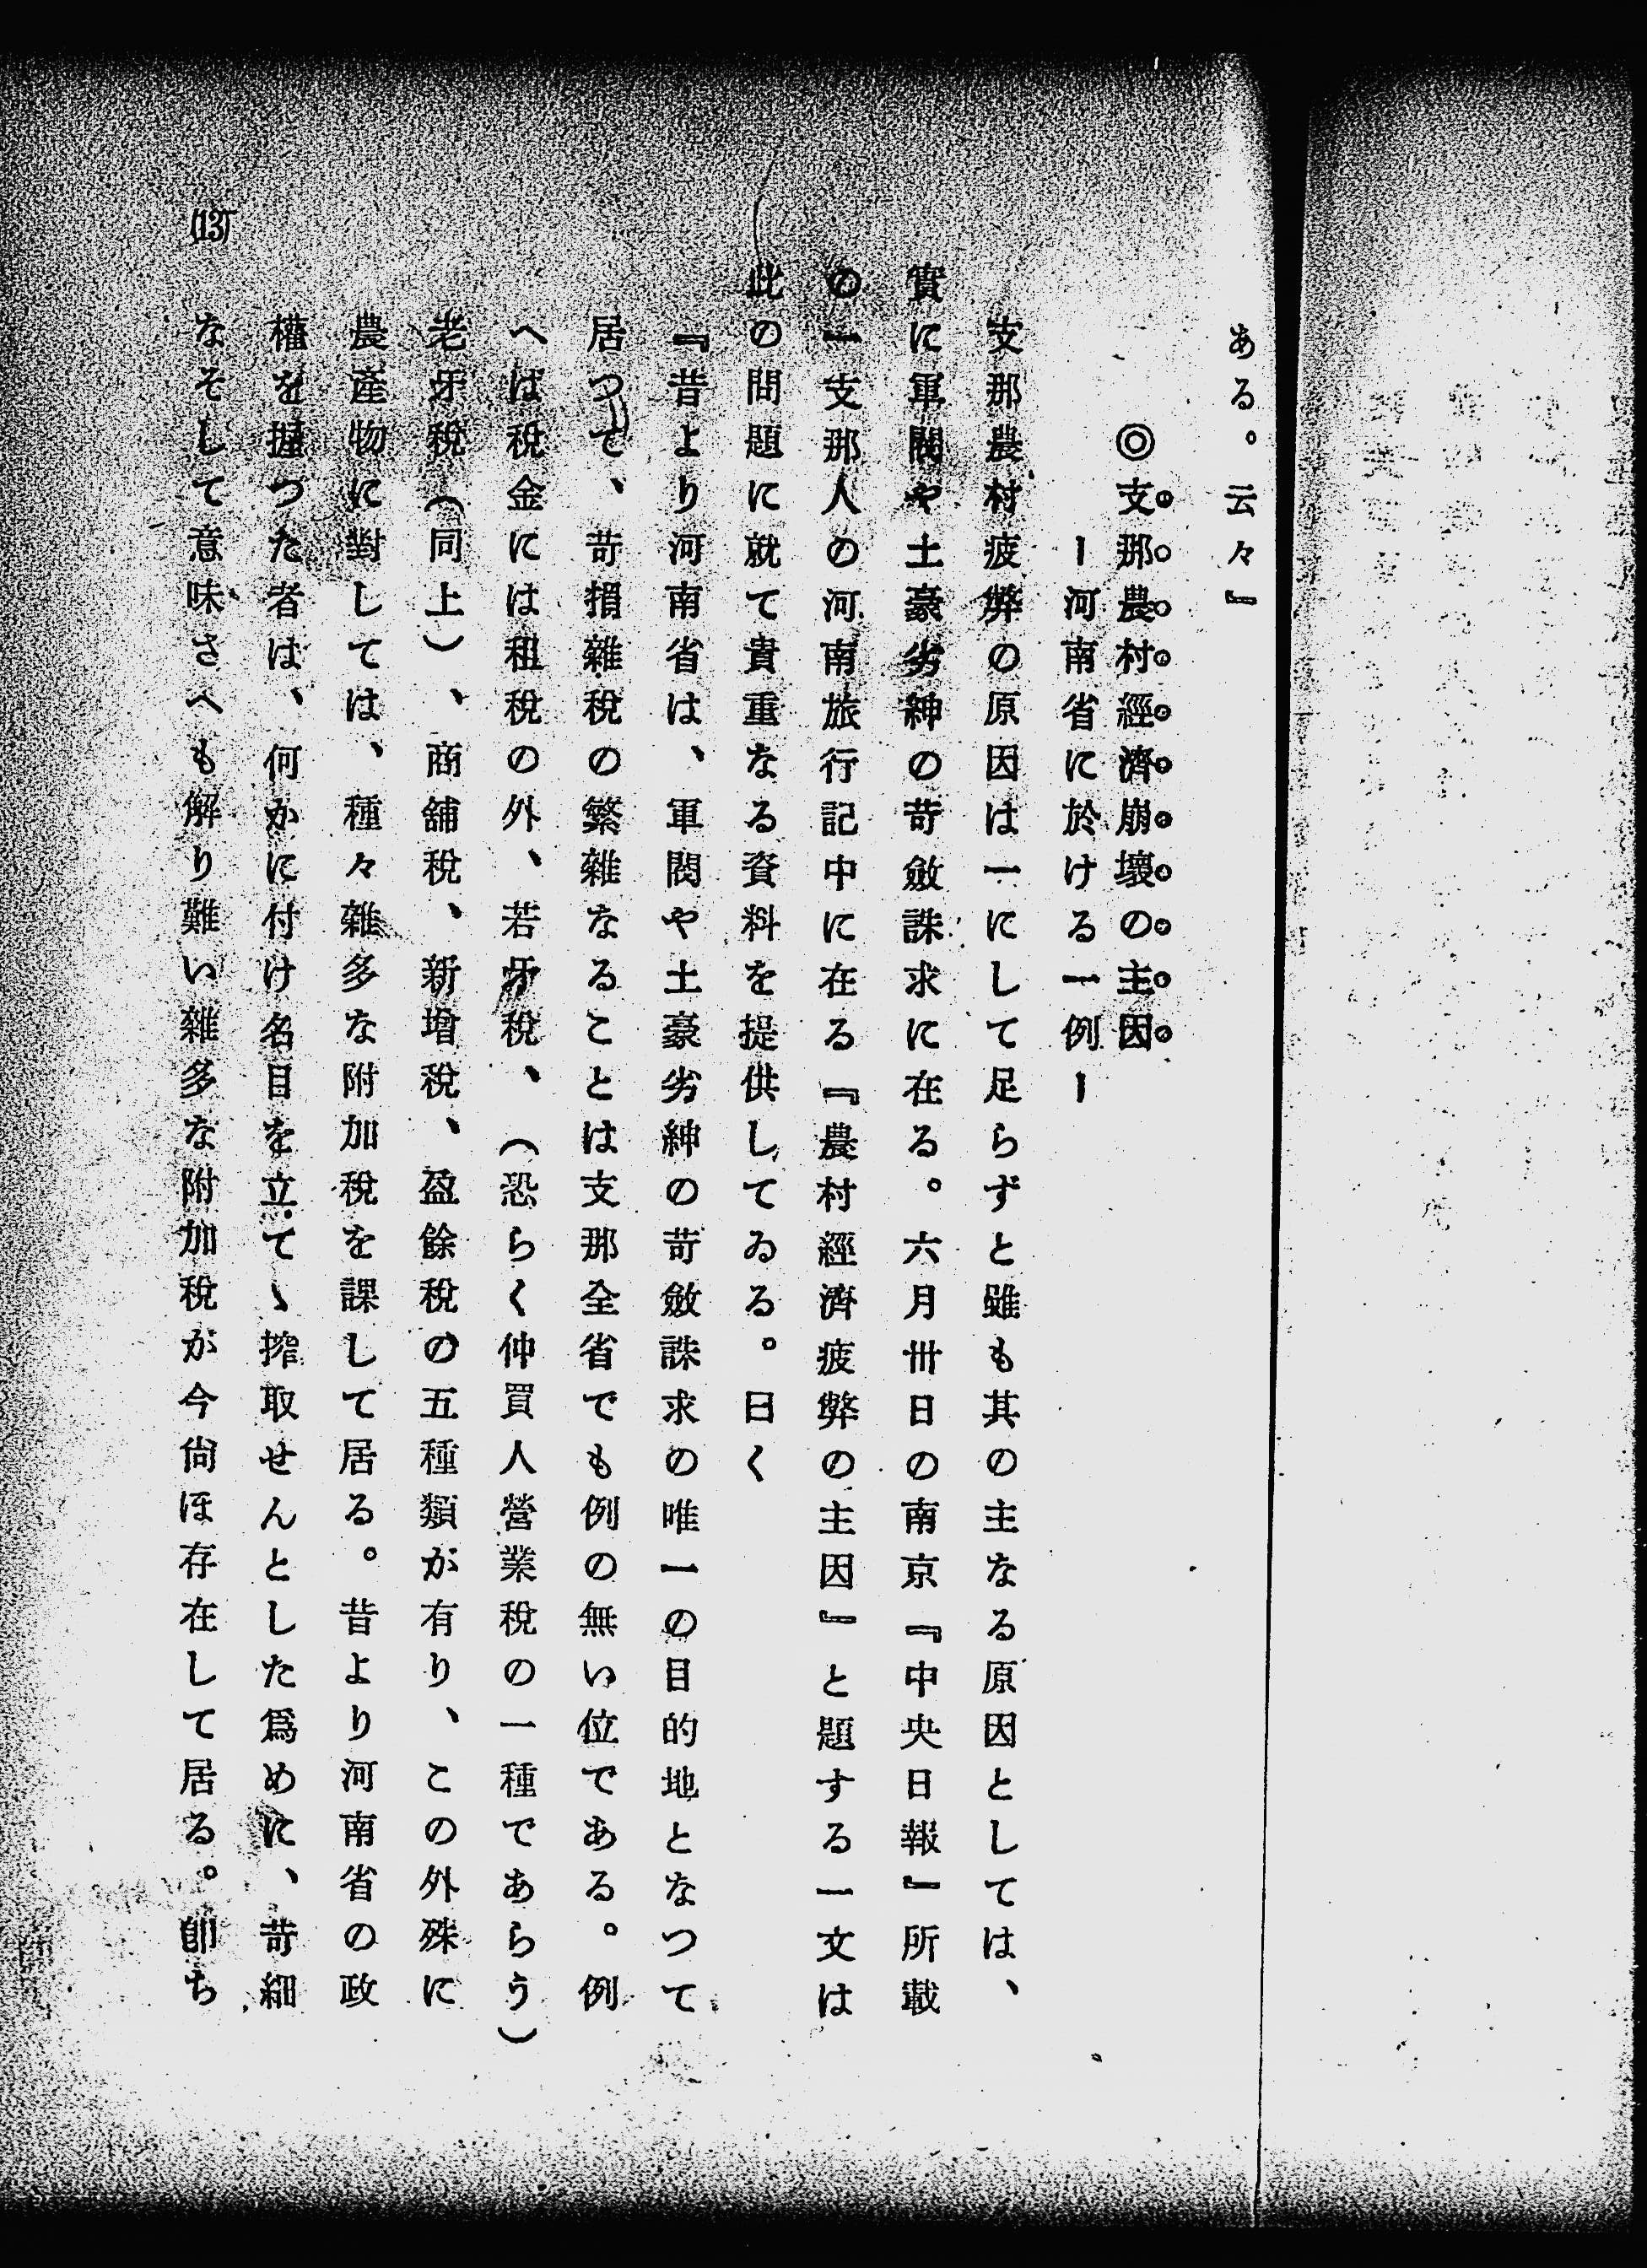 ある。云々』
◎支那農村經濟崩壞の主因
ー河南省に於ける一例ー
支那農村疲弊の原因は一にして足らずと雖も其の主なる原因としては、
實に軍閥や土豪劣紳の苛斂誅求に在る。六月卅日の南京『中央日報』所載
の一支那人の河南旅行記中に在る『農村經濟疲弊の主因』と題する一文は
此の問題に就て貴重なる資料を提供してゐる。曰く
『昔より河南省は、軍閥や土豪劣紳の苛斂誅求の唯一の目的地となつて
居つて、苛捐雜稅の繁雜なることは支那全省でも例の無い位である。例
へば稅金には租稅の外、若牙稅、（恐らく仲買人營業稅の一種であらう）
老牙稅（同上）、商舖稅、新增稅、盈餘稅の五種類が有り、この外殊に
農產物に對しては、種々雜多な附加稅を課して居る。昔より河南省の政
權を握つた者は、何かに付け名目を立てゝ搾取せんとした爲めに、苛細
なそして意味さへも解り難い雜多な附加稅が今尙ほ存在して居る。卽ち
(13)